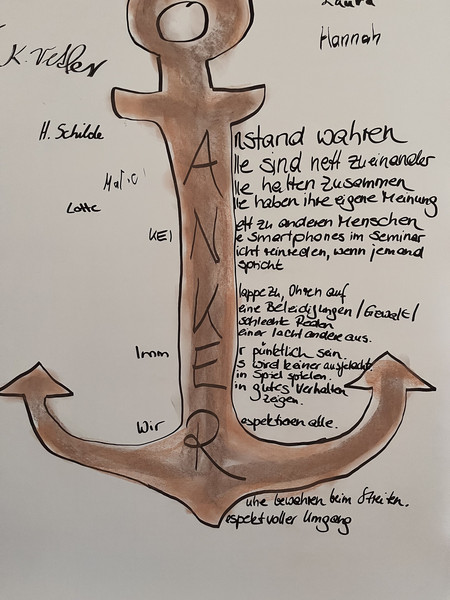 Laura
Hannah
K. Vesper
H. Schilde
Lotte
ANKER
nstand wahren
lle sind nett zueinander
lle halten zusammen
lle haben ihre eigene Meinung
ett zu anderen Menschen
KEI e Smartphones im Seminar
icht reinreden, wenn jemand
spricht
lappe zu, Ohren auf
eine Beleidigungen / Gewalt /
schlechte Reden
einer lacht andere aus.
Imm r pünktlich sein.
s wird keiner ausgelacht.
in Spiel spielen
in gutes Verhalten
zeigen.
Wir espektieren alle.
uhe bewahren beim Streiten.
espektvoller Umgang